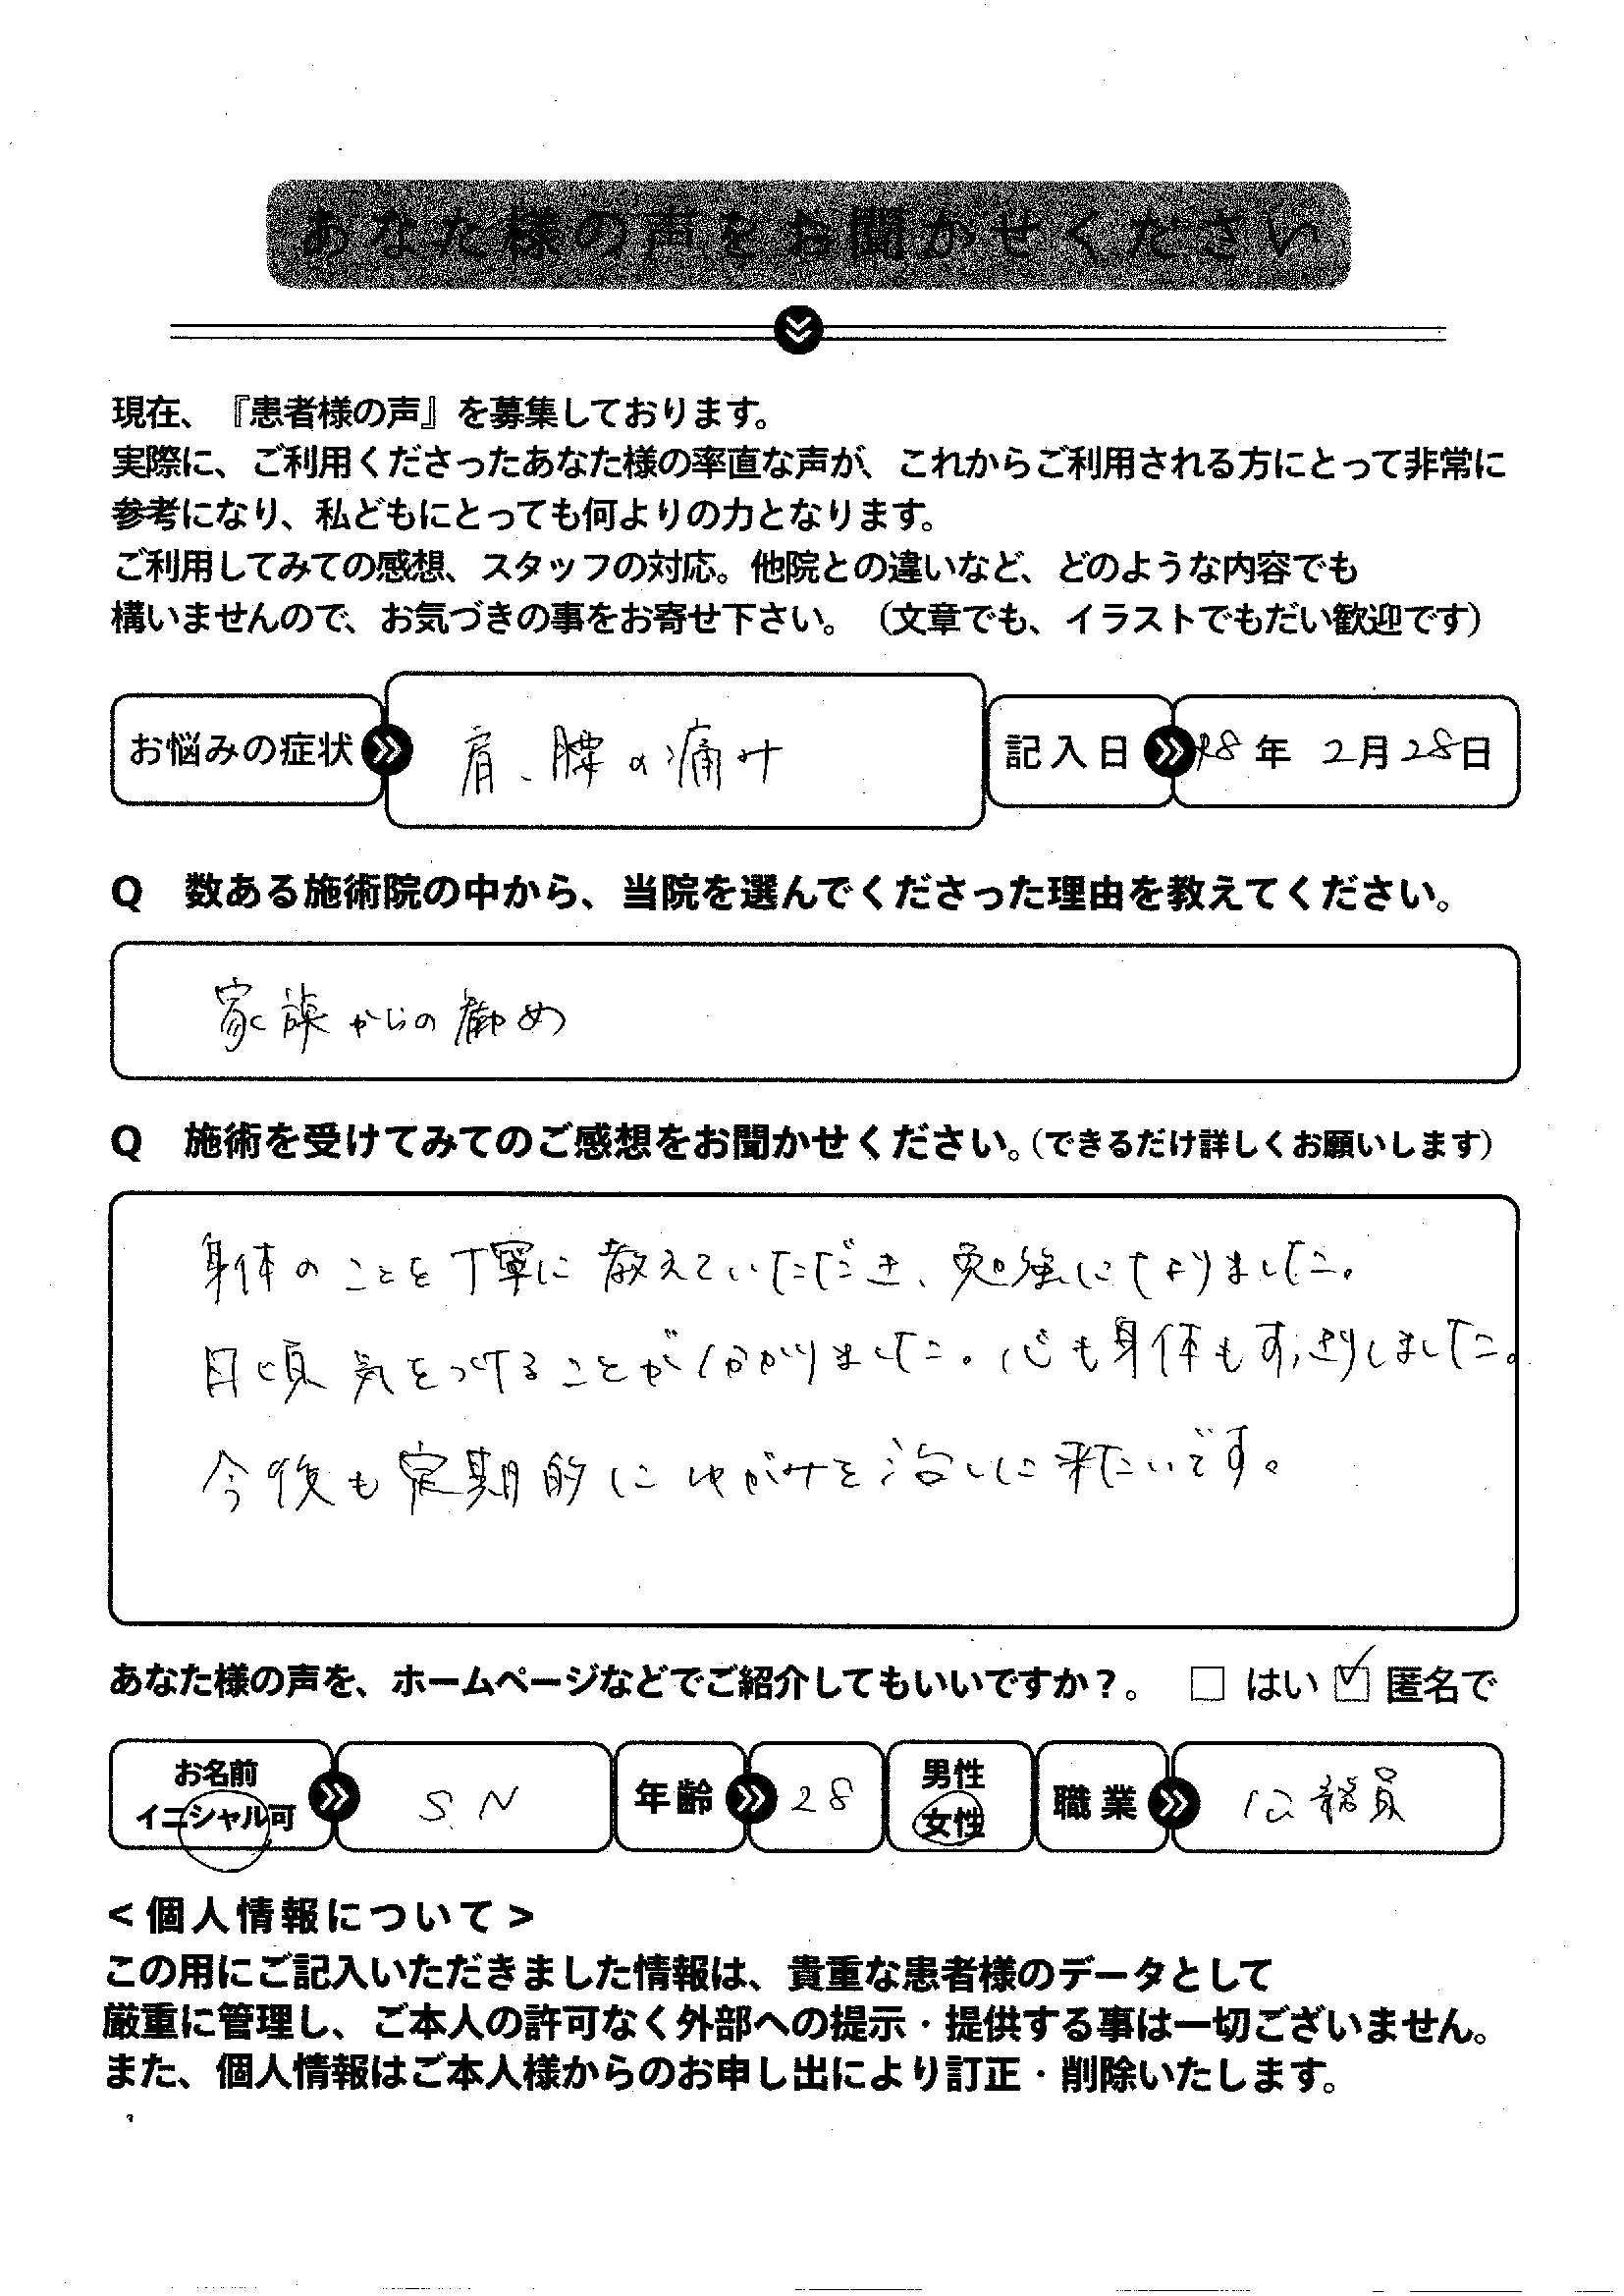 あなた様の声をお聞かせください
現在、『患者様の声』を募集しております。
実際に、ご利用くださったあなた様の率直な声が、これからご利用される方にとって非常に
参考になり、私どもにとっても何よりの力となります。
ご利用してみての感想、スタッフの対応。他院との違いなど、どのような内容でも
構いませんので、お気づきの事をお寄せ下さい。（文章でも、イラストでもだい歓迎です）
お悩みの症状 肩、腰の痛み 記入日 年 2月28日
Q 数ある施術院の中から、当院を選んでくださった理由を教えてください。
家族からの勧め
Q 施術を受けてみてのご感想をお聞かせください。（できるだけ詳しくお願いします）
身体のことを丁寧に教えていただき、勉強になりました。
日頃気をつけることが分かりました。心も身体もすっきりしました。
今後も定期的にゆがみを治しに来たいです。
あなた様の声を、ホームページなどでご紹介してもいいですか？。 □ はい ☑ 匿名で
お名前
イニシャル可 S.N 年齢 28 男性
女性 職業 公務員
＜個人情報について＞
この用にご記入いただきました情報は、貴重な患者様のデータとして
厳重に管理し、ご本人の許可なく外部への提示・提供する事は一切ございません。
また、個人情報はご本人様からのお申し出により訂正・削除いたします。